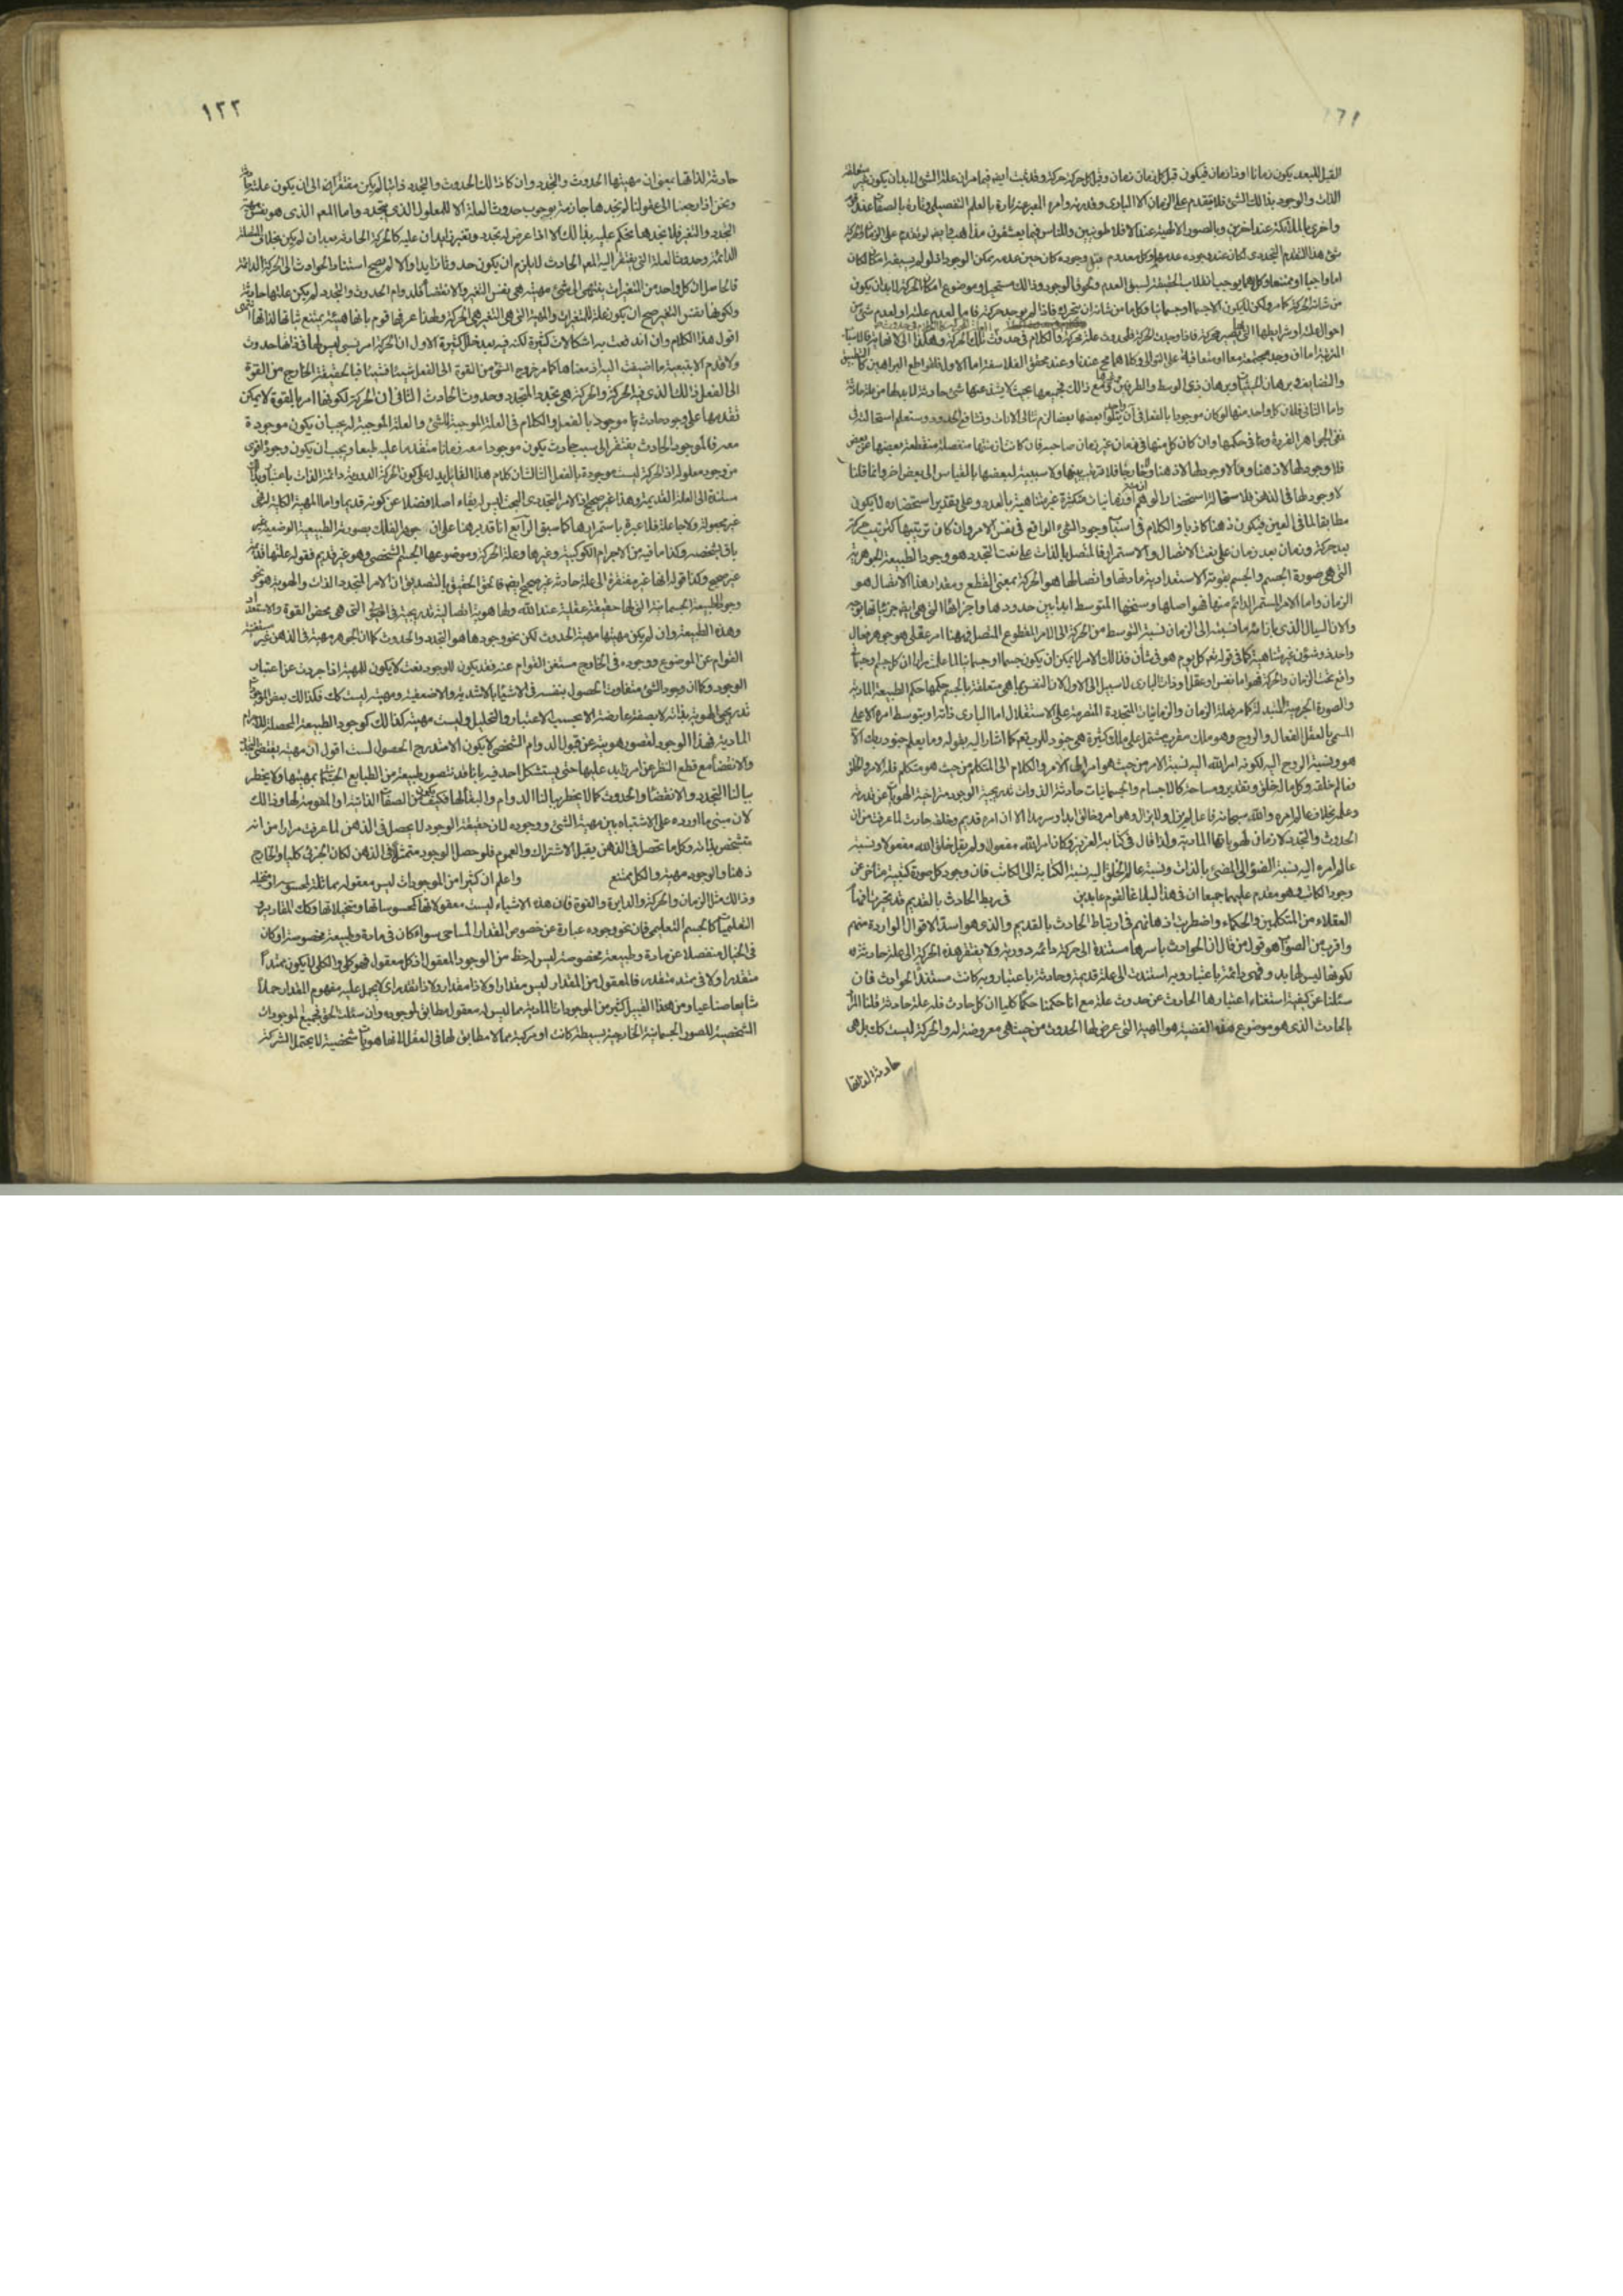 ١٢١
القبل للبعد يكون زمانا او ذا زمان فيكون قبل كل زمان زمان وقبل كل حركة حركة وقد ثبت ايضا فيما مر ان علة الشئ لابد ان يكون غير متعلقة
الذات والوجود بذلك الشئ فلا يتقدم على الزمان الا البارى وقدرته وامره المعبر عنه تارة بالعلم التفصيلى وتارة بالصفات عند قوم
واخرى بالملائكة عند اخرين وبالصور الالهية عند الافلاطونيين وللناس فيما يعشقون مذاهب وايضا لو تقدم على الزمان والحركة
شئ هذا التقدم التجددى لكان عند وجوده عدمهما وكل معدوم قبل وجوده كان حين عدمه ممكن الوجود اذ لو لم يسبقه امكان لكان
اما واجبا او ممتنعا وكلاهما يوجب انقلاب الحقيقة لسبق العدم ولحوق الوجود وذلك مستحيل وموضوع امكان الحركة لابد ان يكون
من شانه الحركة كما مر ولكن لا يكون الا جسما او جسمانيا وكل ما من شانه ان يتحرك فاذا لم يوجد حركته فاما لعدم علته او لعدم شئ من
احوال علته او شرايطها التى بها تصير محركة فاذا وجدت الحركة فلحدوث علة محركة والكلام فى حدوث تلك الحركة وهكذا الى لا نهاية فالاسباب
المترتبة اما ان وجد مجتمعة معا او متعاقبة على التوالى وكلاهما محال عندنا وعند محققى الفلاسفة اما الاول فلقواطع البراهين كالتطبيق
والتضايف وبرهان الحيثيات وبرهان ذى الوسط والطرفين وغيرها ومع ذلك فجميعها بحيث لا يشذ عنها شئ حادثة لابد لها من علة حادثة
واما الثانى فلان كل واحد منها لو كان موجودا بالفعل فى ان واحد يتلو بعضها بعضا لزم تتالى الانات وتشافع الحدود وستعلم استحالته فى
نفى الجواهر الفردة وما فى حكمها وان كان كل منها فى زمان غير زمان صاحبه فان كانت ازمنتها منفصلة منقطعة بعضها عن بعض
فلا وجود لها لا ذهنا ولا خارجا فلا ترتيب بينها ولا سببية لبعضها بالقياس الى بعض اخر وانما قلنا
لا وجود لها فى الذهن بل استحالة استحضار الوهم ازمنة وزمانيات متكثرة غير متناهية بالعدد وعلى تقدير استحضاره لا يكون
مطابقا لما فى العين فيكون ذهنا كاذبا والكلام فى اسباب وجود الشئ الواقع فى نفس الامر وان كان ترتيبها كترتيب حركة
بعد حركة وزمان بعد زمان على نعت الاتصال والاستمرار فالمتصل بالذات على نعت التجدد هو وجود الطبيعة الجوهرية
التى هى صورة الجسم والجسم بقوته الاستعدادية مادتها واتصالها هو الحركة بمعنى القطع ومقدار هذا الاتصال هو
الزمان واما الامر المستمر الدائم منها فهو اصلها وسنخها المتوسط ابدا بين حدودها واجزائها التى هى ايضا جزئياتها بوجه
والان السيال الذى بازائه ما نسبته الى الزمان نسبة التوسط من الحركة الى الامر المقطوع المتصل فههنا امر عقلى هو جوهر فعال
واحد ذو شؤون غير متناهية كما فى قوله تعالى كل يوم هو فى شأن فذلك الامر لا يمكن ان يكون جسما او جسمانيا لما علمت مرارا ان كل جسم وجسمانى
واقع تحت الزمان والحركة فهو اما نفس او عقل او ذات البارى لا سبيل الى الاول لان النفس بما هى متعلقة بالجسم حكمها حكم الطبيعة المادية
والصورة الجرمية المتبدلة كما مر فعلة الزمان والزمانيات المتجددة المتصرمة على الاستقلال اما البارى ذاته او بتوسط امره الاعلى
المسمى بالعقل الفعال والروح وهو ملك مقرب مشتمل على ملائكة كثيرة هى جنود للرب تعالى كما اشار اليه بقوله وما يعلم جنود ربك الا
هو ونسبة الروح اليه لكونه امر الله اليه نسبة الامر من حيث هو امر الى الامر والكلام الى المتكلم من حيث هو متكلم فله الامر والخلق
فعالم خلقه وكل ما له خلق وتقدير ومساحة كالاجسام والجسمانيات حادثة الذوات تدريجية الوجود متراخية الهويات عن قدرته
وعلمه بخلاف عالم امره والله سبحانه فاعل لم يزل ولا يزال وهو امر وخالق ابدا وسرمدا الا ان امره قديم وخلقه حادث لما عرفت من ان
الحدوث والتجدد لازمان لهوياتها المادية ولذا قال فى كتابه العزيز وكان امر الله مفعولا ولم يقل خلق الله مفعولا ونسبة
عالم امره اليه نسبة الضوء الى المضئ بالذات ونسبة عالم الخلق اليه نسبة الكتابة الى الكاتب فان وجود كل صورة كتبية متاخر عن
وجود الكاتب وهو مقدم عليهما جميعا ان فى هذا لبلاغا لقوم عابدين فى ربط الحادث بالقديم قد تحيرت افهام
العقلاء من المتكلمين والحكماء واضطربت اذهانهم فى ارتباط الحادث بالقديم والذى هو اسد الاقوال الواردة منهم
واقرب من الصواب هو قول من قال ان الحوادث باسرها مستندة الى حركة دائمة دورية ولا يفتقر هذه الحركة الى علة حادثة
لكونها ليس لها بدو فهى دائمة باعتبار وبه استندت الى علة قديمة وحادثة باعتبار وبه كانت مستند الحوادث فان
سئلنا عن كيفية استغناء اعتبارها الحادث عن حدوث علة مع انا حكمنا حكما كليا ان كل حادث فله علة حادثة قلنا المراد
بالحادث الذى هو موضوع هذه القضية هو الماهية التى عرض لها الحدوث من حيث هى معروضة له والحركة ليست كذلك بل هى
حادثة لذاتها
١٢٢
حادثة لذاتها بمعنى ان مهيتها الحدوث والتجدد وان كان ذلك الحدوث والتجدد ذاتيا لم يكن مفتقرا الى ان يكون علته حادثة
ونحن اذا رجعنا الى عقولنا لم نجدها جازمة بوجوب حدوث العلة الا للمعلول الذى يتجدد واما المعلول الذى هو نفس ماهيته
التجدد والتغير فلا نجدها تحكم عليه بذلك الا اذا عرض له تجدد وتغير زايدان عليه كالحركة الحادثة بعد ان لم يكن بخلاف المتصلة
الدائمة وحدوث العلة التى يفتقر اليه المعلول الحادث لا يلزم ان يكون حدوثا زايدا والا لم يصح استناد الحوادث الى الحركة الدائمة
فالحاصل ان كل واحد من التغيرات ينتهى الى شئ مهيته هى نفس التغير والانقضاء فلدوام الحدوث والتجدد لم يكن علتها حادثة
ولكونها نفس التغير صح ان يكون علة للمتغيرات والماهية التى هى التغير هى الحركة ولهذا عرفها قوم بانها هيئة يمتنع ثباتها لذاتها انتهى
اقول هذا الكلام وان اندفعت به اشكالات كثيرة لكنه فيه بعد خلل كثيرة الاول ان الحركة امر نسبى ليس لها فى ذاتها حدوث
ولا قدم الا بتبعية ما اضيفت اليه اذ معناها كما مر خروج الشئ من القوة الى الفعل شيئا فشيئا فبالحقيقة الخارج من القوة
الى الفعل ذلك الذى فيه الحركة والحركة هى تجدد المتجدد وحدوث الحادث الثانى ان الحركة لكونها امرا بالقوة لا يمكن
تقدمها على وجود حادث ما موجود بالفعل والكلام فى العلة الموجبة للشئ والعلة الموجبة له يجب ان يكون موجودة
معه فالموجود الحادث يفتقر الى سبب حادث يكون موجودا معه زمانا متقدما عليه طبعا ويجب ان يكون وجوده اقوى
من وجود معلوله اذ الحركة ليست موجودة بالفعل الثالث ان كلام هذا القائل يدل على كون الحركة الدورية دائمة الذات باعتبار وبه
مستندة الى العلة القديمة وهذا غير صحيح اذ الامر التجددى البحت ليس له بقاء اصلا فضلا عن كونه قديما واما الماهية الكلية فهى
غير مجعولة ولا جاعلة فلا عبرة باستمرارها كما سبق الرابع انا قد برهنا على ان جوهر الفلك بصورته الطبيعية الوضعية غير
باق الشخصية وكذا ما فيه من الاجرام الكوكبية وغيرها وعلة الحركة وموضوعها الجسم الشخصى وهو غير قديم فقوله علتها قديمة
غير صحيح وكذا قوله انها غير مفتقرة الى علة حادثة غير صحيح ايضا فالحق الحقيق بالتصديق ان الامر المتجدد الذات والهوية هو نحو
وجود الطبيعة الجسمانية التى لها حقيقة عقلية عند الله ولها هوية اتصالية تدريجية فى الهيولى التى هى محض القوة والاستعداد
وهذه الطبيعة وان لم يكن مهيتها مهية الحدوث لكن نحو وجودها هو التجدد والحدوث كما ان الجوهر مهية فى الذهن غير مستغنية
القوام عن الموضوع ووجوده فى الخارج مستغن القوام عنه فقد يكون للوجود نعت لا يكون للمهية اذا جردت عن اعتبار
الوجود وكما ان وجود الشئ متفاوت الحصول بنفسه فى الاشياء بالاشدية والاضعفية ومهيته ليست كذلك فكذلك بعض الوجودات
تدريجى الهوية بذاته لا بصفة عارضة الا بحسب الاعتبار والتحليل وليست مهيته كذلك كوجود الطبيعة المحصلة للاجرام
المادية فهذا الوجود لقصور هويته عن قبول الدوام الشخصى لا يكون الا متدرج الحصول لست اقول ان مهيته يقتضى التجدد
والانقضاء مع قطع النظر عن امر زايد عليها حتى يستشكل احد فيه بانا قد نتصور طبيعة من الطبايع الجسمانية بمهيتها ولا يخطر
ببالنا التجدد والانقضاء والحدوث كما لا يخطر ببالنا الدوام والبقاء لها فكيف يكون من الصفات الذاتية او المقومة لها وذلك
لان مبنى ما اورده على الاشتباه بين مهية الشئ ووجوده لان حقيقة الوجود لا يحصل فى الذهن لما عرفت مرارا من انه
متشخص بذاته وكل ما تحصل فى الذهن يقبل الاشتراك والعموم فلو حصل الوجود متمثلا فى الذهن لكان الجزئى كليا والخارج
ذهنا والوجود مهية والكل ممتنع واعلم ان كثيرا من الموجودات ليس معقوله مماثلة لمحسوسه او متخيله
وذلك مثل الزمان والحركة والدايرة والقوة فان هذه الاشياء ليست معقولاتها كمحسوساتها ومتخيلاتها وكذلك المقادير و
التعليميات كالجسم التعليمى فان نحو وجوده عبارة عن خصوص المقدار المساحى سواء كان فى مادة وطبيعة مخصوصة او كان
فى الخيال منفصلا عن مادة وطبيعة مخصوصة ليس له حظ من الوجود المعقول اذ كل معقول فهو كلى والكلى لا يكون ممتدا
متقدرا ولا فى ممتد متقدر فالمعقول من المقدار ليس مقدارا ولا ذا مقدار ولا ذا تقدر اى لا يحمل عليه مفهوم المقدار حملا
شايعا صناعيا ومن هذا القبيل كثير من الموجودات المادية مما ليس له معقول مطابق لوجوده وان سئلت الحق فجميع الموجودات
الشخصية للصور الجسمانية الخارجية بسيطة كانت او مركبة مما لا مطابق لها فى العقل لانها هويات شخصية لا يحتمل الشركة